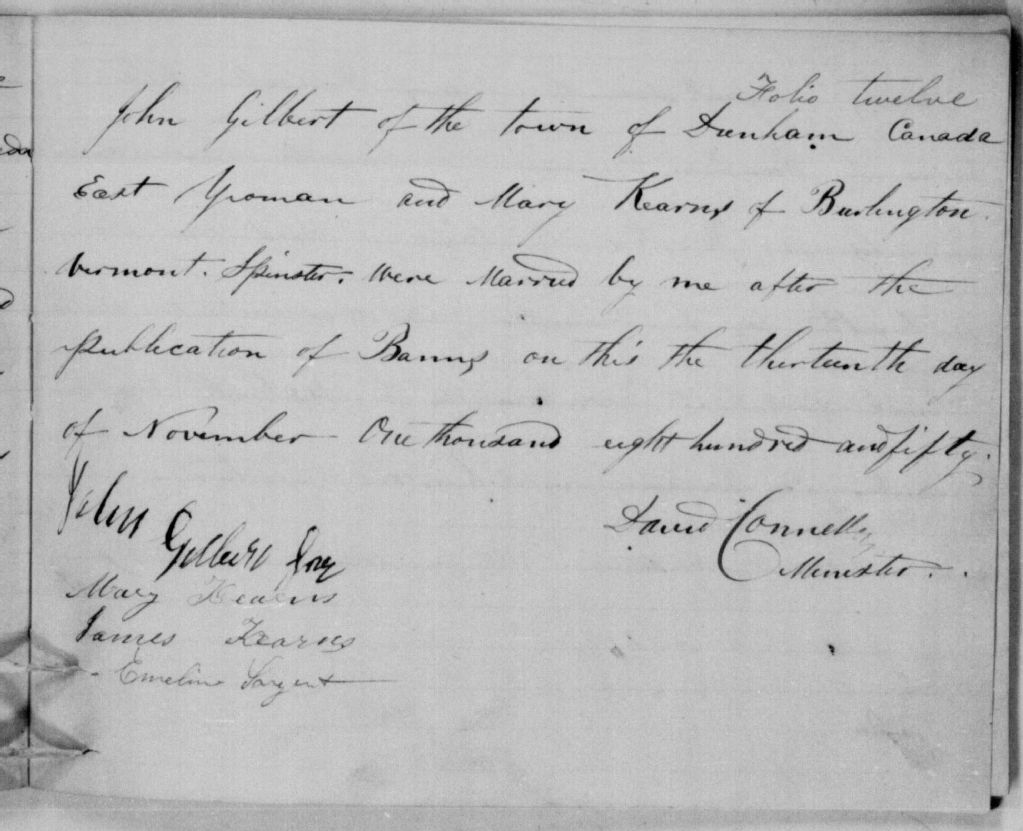 Folio twelve
John Gilbert of the town of Dunham Canada
East Yeoman and Mary Kearns of Burlington
Vermont. Spinster. were Married by me after the
publication of Banns on this the thirteenth day
of November One thousand eight hundred and fifty.
John
Gilbert
David Connelly
Minister.
Mary Kearns
James Kearns
Emeline Sargent